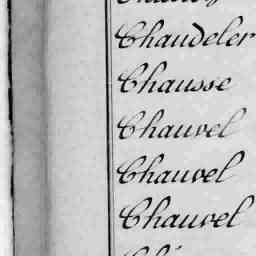 Chaudeler
Chausse
Chauvel
Chauvel
Chauvel